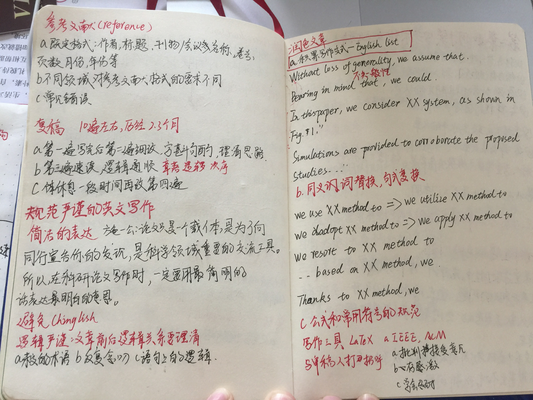 参考文献(reference)
a 既定格式:作者,标题,刊物/会议名称,卷号,
页数,月份,年份等
b 不同领域对参考文献格式的要求不同
c 常见错误
复稿 10遍左右,历经2.3个月
a 第一遍写完后第二遍细读,字斟句酌,理有思路
b 第三遍速读,逻辑通顺 章节 逻辑 次序
c 休息一段时间再改第四遍
规范严谨的英文写作
简洁的表达 论文只是一个载体,是为了向
同行宣告你的发现,是科学领域重要的交流工具。
所以,在科研论文写作时,一定要用最简明的
话表达最明白的意思。
避免Chinglish
逻辑严谨:文章前后逻辑关系要理清
a 段的 b 复合 c 语句之间的逻辑.
润色文章
a. 积累写作句式—English list
Without loss of generality, we assume that.
不失一般性
Bearing in mind that, we could
In this paper, we consider XX system, as shown in
Fig.#1."
Simulations are provided to corroborate the proposed
studies..."
b. 同义词,词替换,句式变换
we use XX method to => we utilise XX method to
we adopt XX method to => we apply XX method to
we resort to XX method to
... based on XX method, we
Thanks to XX method, we
c 公式和常用符号的规范
写作工具 LaTeX a IEEE, ACM
与审稿人打好招呼